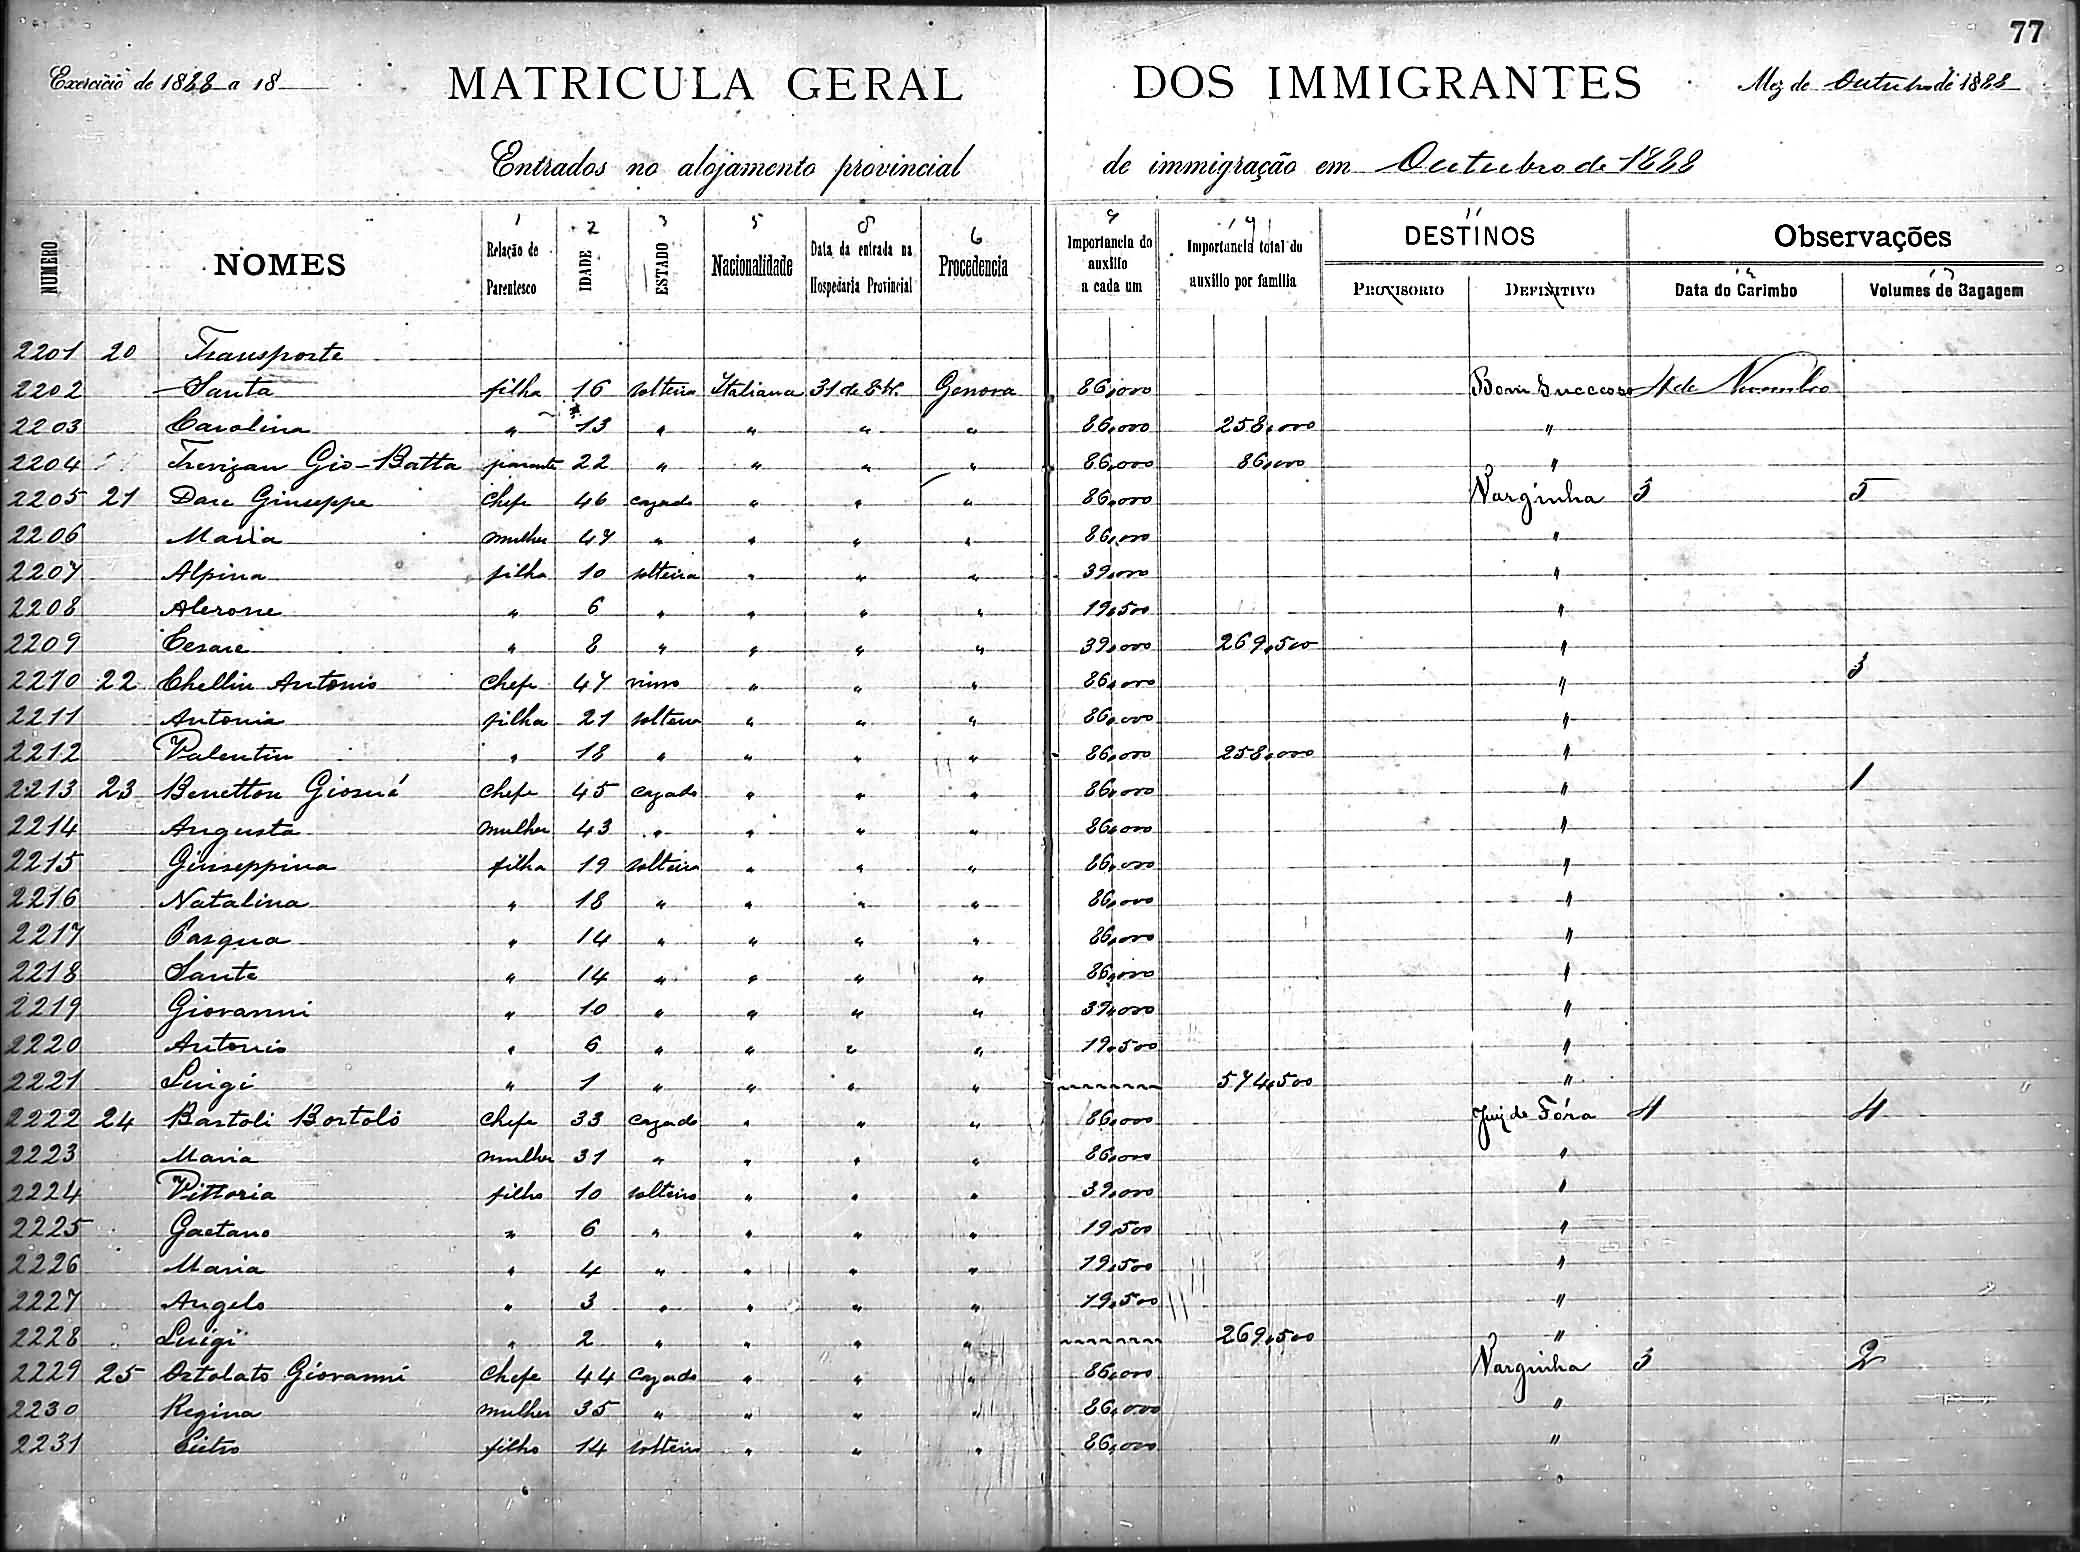 77
Exercicio de 1888 a 18
MATRICULA GERAL DOS IMMIGRANTES
Mez de Outubro de 1888
Entrados no alojamento provincial de immigração em Outubro de 1888
1 2 3 5 8 6 9 14 11 12 13
NUMERO NOMES Relação de Parentesco IDADE ESTADO Nacionalidade Data da entrada na Hospedaria Provincial Procedencia Importancia do auxilio a cada um Importancia total do auxilio por familia DESTINOS Observações
PROVISORIO DEFINITIVO Data do Carimbo Volumes de Bagagem
2201 20 Transporte
2202 Santa filha 16 solteira Italiana 31 de 8br. Genova 86,000 Bom Successo 4 de Novembro
2203 Carolina " 13 " " " " 86,000 258,000 "
2204 Trevizan Gio-Batta parente 22 " " " " 86,000 86,000 "
2205 21 Dare Giuseppe Chefe 46 cazado " " " 86,000 Varginha 3 5
2206 Maria mulher 47 " " " " 86,000 "
2207 Alpina filha 10 solteira " " " 39,000 "
2208 Alerone " 6 " " " " 19,500 "
2209 Cesare " 8 " " " " 39,000 269,500 "
2210 22 Chellin Antonio Chefe 47 viuvo " " " 86,000 " 3
2211 Antonia filha 21 solteira " " " 86,000 "
2212 Valentin " 18 " " " " 86,000 258,000 "
2213 23 Benetton Giosué Chefe 45 cazado " " " 86,000 " 1
2214 Augusta mulher 43 " " " " 86,000 "
2215 Giuseppina filha 19 solteira " " " 86,000 "
2216 Natalina " 18 " " " " 86,000 "
2217 Pasqua " 14 " " " " 86,000 "
2218 Sante " 14 " " " " 86,000 "
2219 Giovanni " 10 " " " " 39,000 "
2220 Antonio " 6 " " " " 19,500 "
2221 Luigi " 1 " " " " 574,500 "
2222 24 Bartoli Bortolo Chefe 33 cazado " " " 86,000 Juiz de Fóra 4 4
2223 Maria mulher 31 " " " " 86,000 "
2224 Vittoria filho 10 solteiro " " " 39,000 "
2225 Gaetano " 6 " " " " 19,500 "
2226 Maria " 4 " " " " 19,500 "
2227 Angelo " 3 " " " " 19,500 "
2228 Luigi " 2 " " " " 269,500 "
2229 25 Ortolato Giovanni Chefe 44 Cazado " " " 86,000 Varginha 3 2
2230 Regina mulher 35 " " " " 86,000 "
2231 Pietro filho 14 solteiro " " " 86,000 "